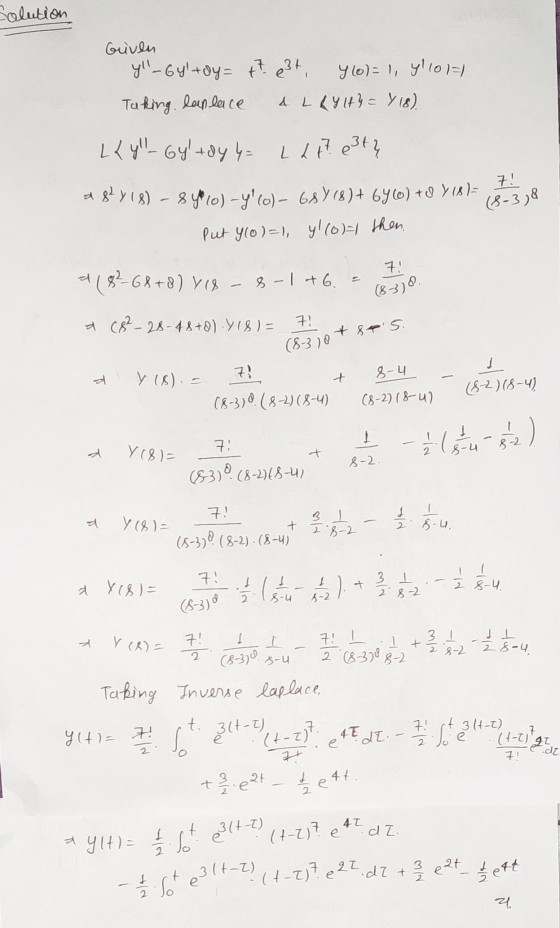 Solution
Given
y'' - 6y' + 8y = t^7 e^{3t}, y(0) = 1, y'(0) = 1
Taking laplace & L{y(t)} = Y(s)
L{y'' - 6y' + 8y} = L{t^7 e^{3t}}
⇒ s^2 Y(s) - s y(0) - y'(0) - 6s Y(s) + 6y(0) + 8 Y(s) = 7!/(s-3)^8
Put y(0) = 1, y'(0) = 1 then
⇒ (s^2 - 6s + 8) Y(s - s - 1 + 6 = 7!/(s-3)^8
⇒ (s^2 - 2s - 4s + 8) · Y(s) = 7!/(s-3)^8 + s - 5
⇒ Y(s) = 7!/((s-3)^8 (s-2)(s-4)) + (s-4)/((s-2)(s-4)) - 1/((s-2)(s-4))
⇒ Y(s) = 7!/((s-3)^8 · (s-2)(s-4)) + 1/(s-2) - 1/2 (1/(s-4) - 1/(s-2))
⇒ Y(s) = 7!/((s-3)^8 · (s-2) · (s-4)) + 3/2 · 1/(s-2) - 1/2 · 1/(s-4)
⇒ Y(s) = 7!/(s-3)^8 · 1/2 · (1/(s-4) - 1/(s-2)) + 3/2 · 1/(s-2) - 1/2 1/(s-4)
⇒ Y(s) = 7!/2 · 1/(s-3)^8 · 1/(s-4) - 7!/2 · 1/(s-3)^8 · 1/(s-2) + 3/2 1/(s-2) - 1/2 1/(s-4)
Taking Inverse laplace,
y(t) = 7!/2 · ∫_0^t e^{3(t-τ)} (t-τ)^7/7! · e^{4τ} dτ - 7!/2 · ∫_0^t e^{3(t-τ)} (t-τ)^7/7! e^{2τ} · dτ
+ 3/2 · e^{2t} - 1/2 e^{4t}
⇒ y(t) = 1/2 · ∫_0^t e^{3(t-τ)} (t-τ)^7 · e^{4τ} dτ
- 1/2 · ∫_0^t e^{3(t-τ)} · (t-τ)^7 · e^{2τ} · dτ + 3/2 e^{2t} - 1/2 e^{4t}